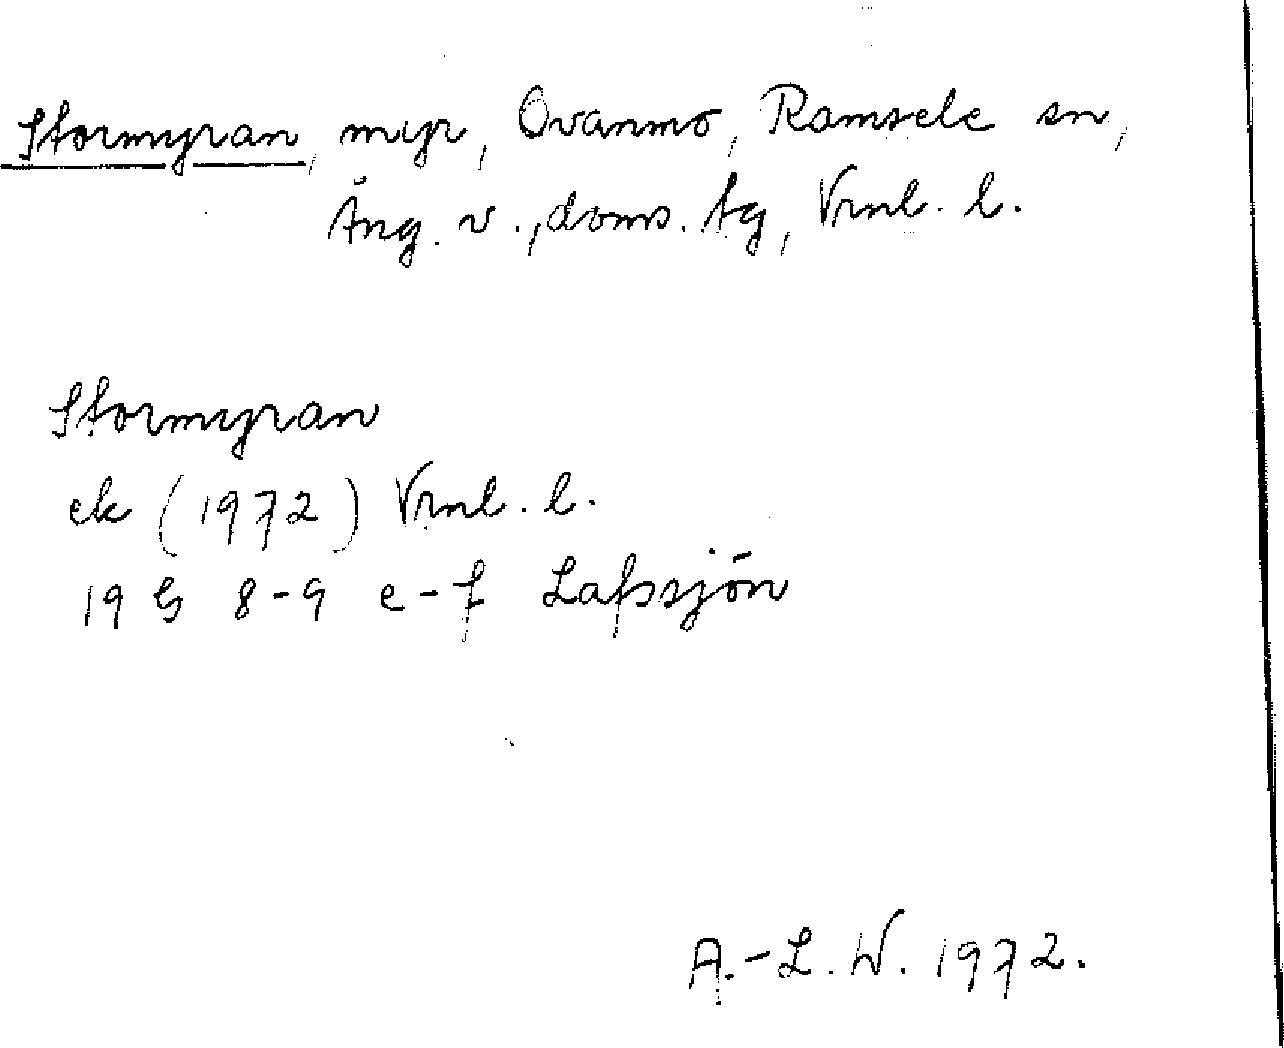 Stormyran, myr, Ovanmo, Ramsele sn,
Äng. v., doms. tg, Vrnl. l.
Stormyran
ek (1972) Vrnl. l.
19 G 8-9 e-f Lafssjön
A.-L.W. 1972.